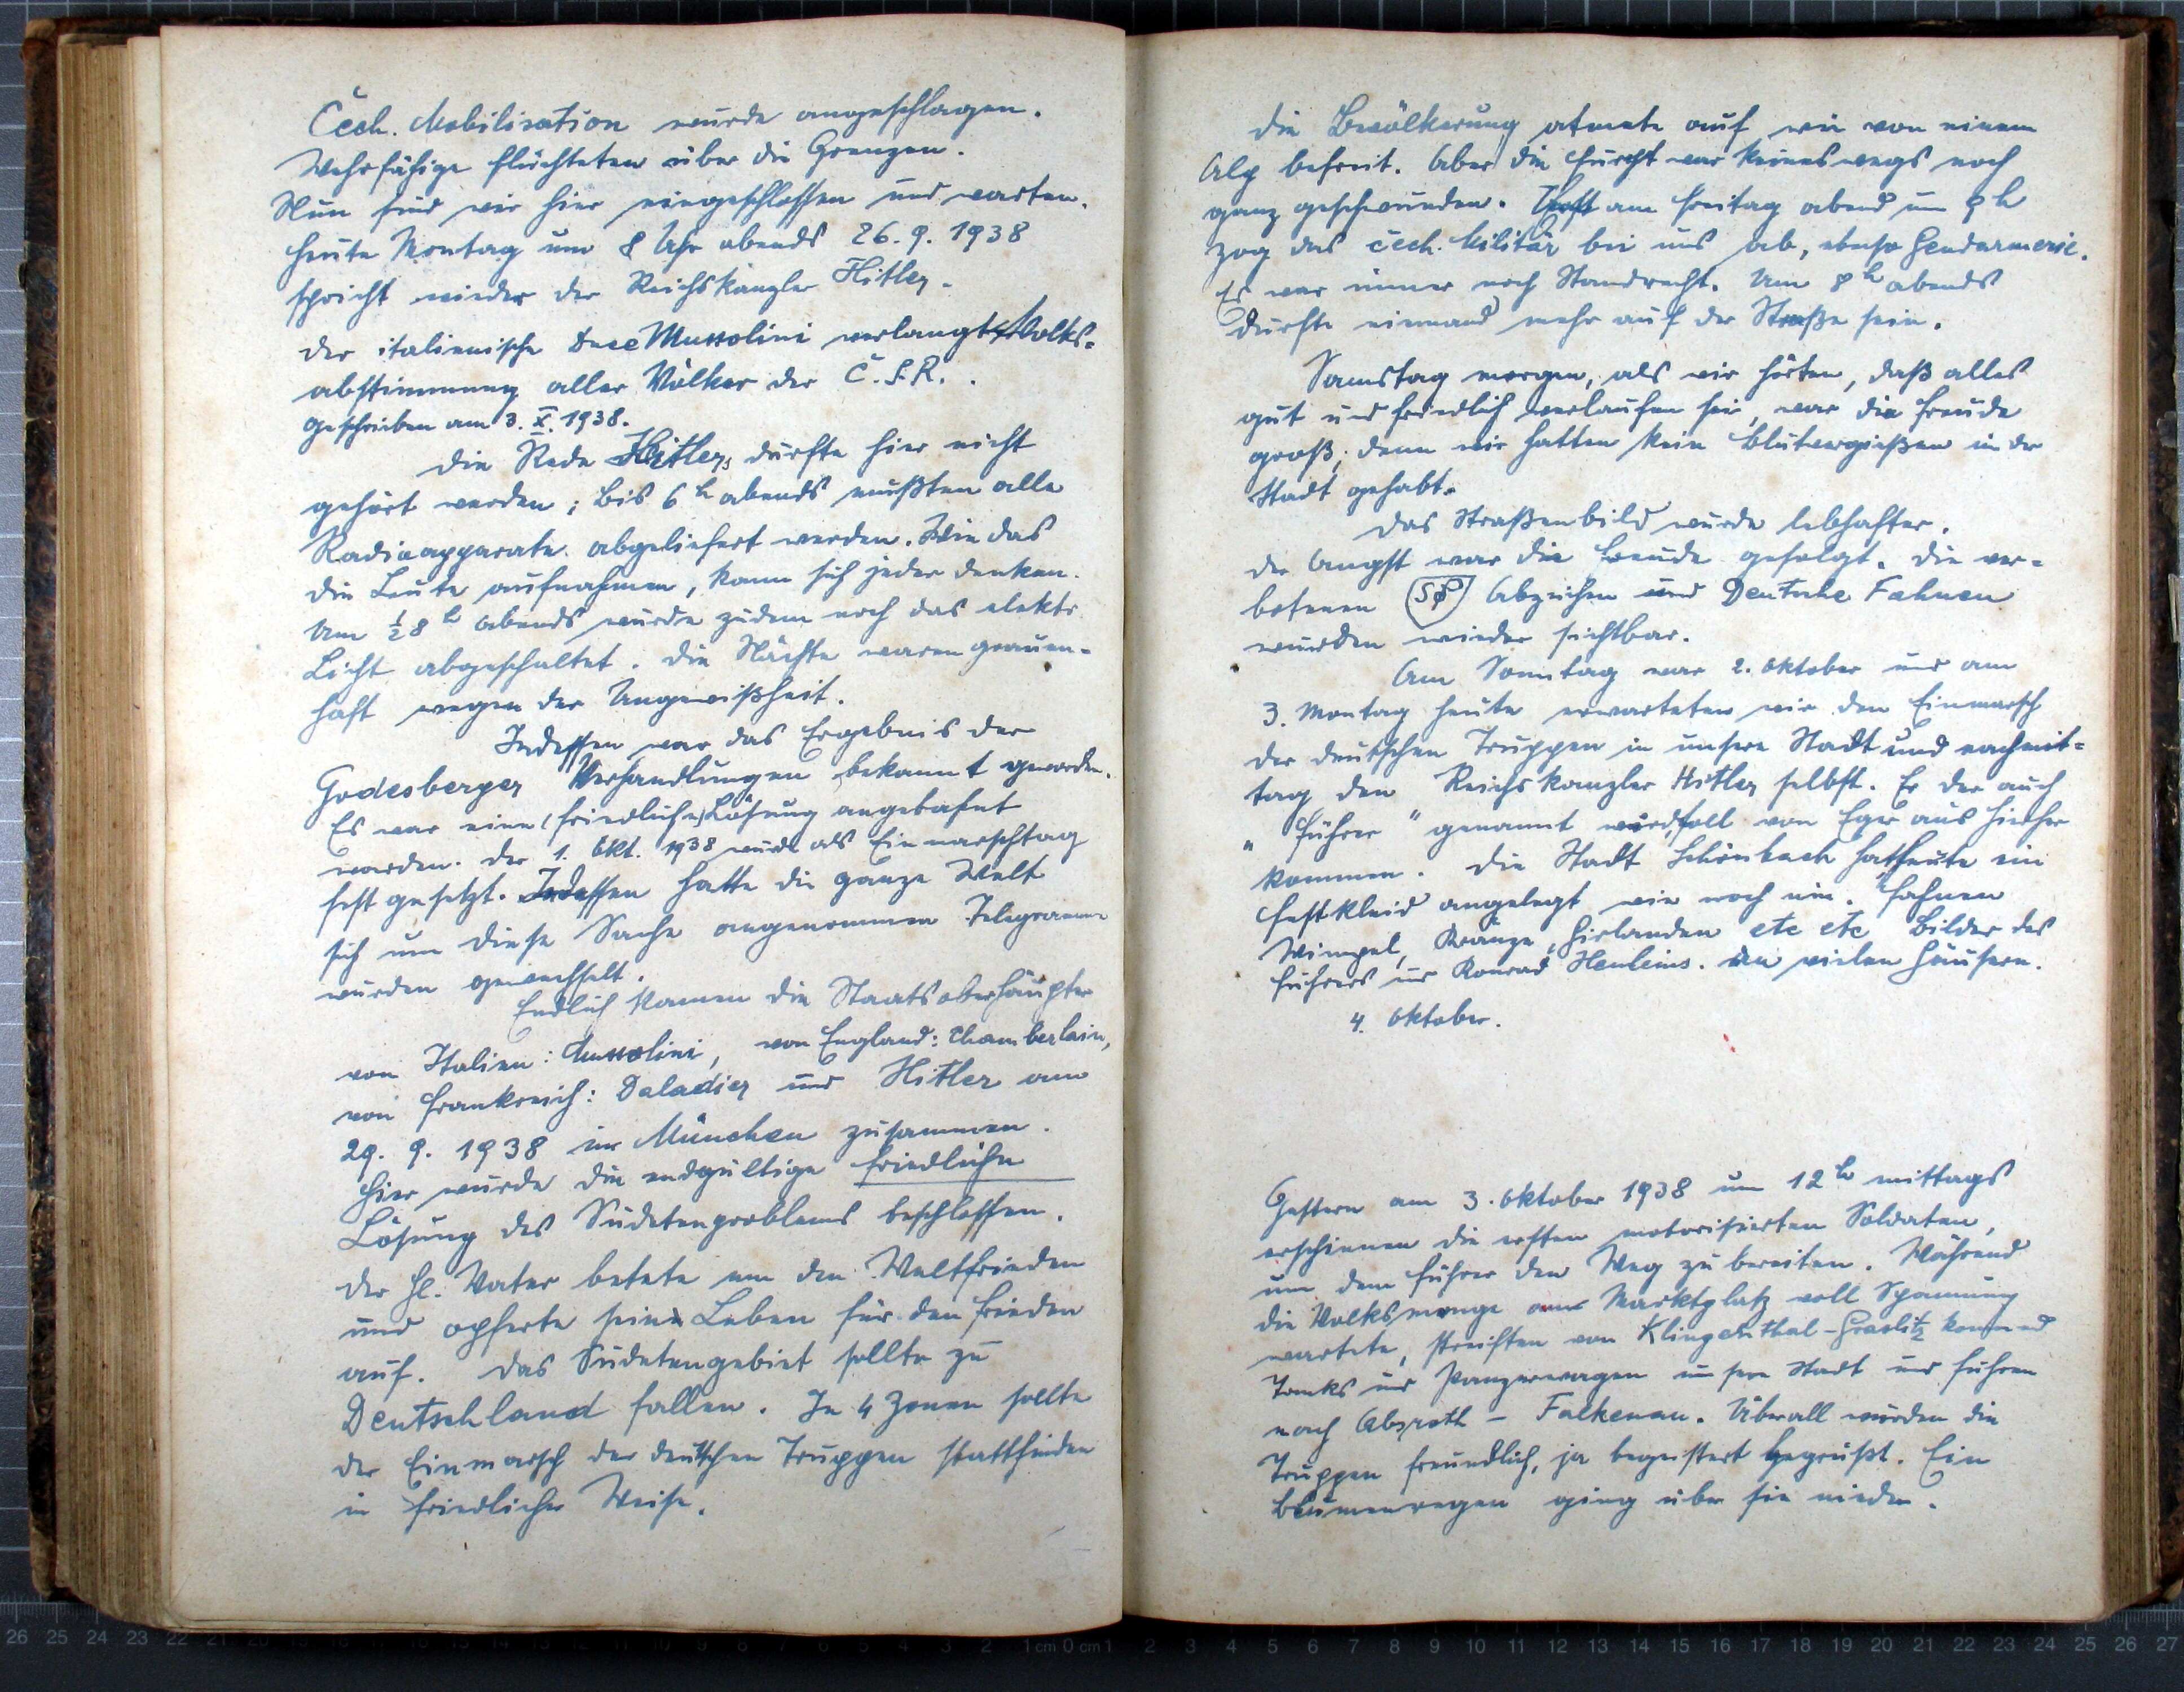 Čech. Mobilisation wurde angeschlagen.
Wehrfähige flüchteten über die Grenzen.
Nun sind wir hier eingeschlossen und warten.
Heute Montag um 8 Uhr abends 26. 9. 1938
spricht wieder der Reichskanzler Hitler.
Der italienische Duce Mussolini verlangt Volks=
abstimmung aller Völker der Č.S.R..
Geschrieben am 3. X. 1938.
Die Rede Hitlers durfte hier nicht
gehört werden; bis 6 h abends mußten alle
Radioapparate abgeliefert werden. Wie das
die Leute aufnahmen, kann sich jeder denken.
Um ½ 8 h abends wurde zudem noch das elektr.
Licht abgeschaltet. Die Nächte waren grauen-
haft wegen der Ungewißheit.
Indessen war das Ergebnis der
Godesberger Verhandlungen bekannt geworden.
Es war eine (friedliche) Lösung angebahnt
worden. Der 1. Okt. 1938 wurde als Einmarschtag
festgesetzt. Indessen hatte die ganze Welt
sich um diese Sache angenommen Telegramme
wurden gewechselt.
Endlich kamen die Staatsoberhäupter
von Italien: Mussolini, von England: Chamberlain,
von Frankreich: Daladier und Hitler am
29. 9. 1938 in München zusammen.
Hier wurde die endgültige friedliche
Lösung des Sudetenproblems beschlossen.
Der Hl. Vater betete um den Weltfrieden
und opferte sein Leben für den Frieden
auf. Das Sudetengebiet sollte zu
Deutschland fallen. In 4 Zonen sollte
der Einmarsch der deutschen Truppen stattfinden
in friedlicher Weise.
Die Bevölkerung atmete auf wie von einem
Alp befreit. Aber die Furcht war keineswegs noch
ganz geschwunden. Erst am Freitag abend um 9 h
zog das čech. Militär bei uns ab, ebenso Gendarmerie.
Es war immer noch Standrecht. Um 8 h abends
durfte niemand mehr auf der Straße sein.
Samstag morgen, als wir hörten, daß alles
gut und friedlich verlaufen sei, war die Freude
groß; denn wir hatten kein Blutvergießen in der
Stadt gehabt.
Das Straßenbild wurde lebhafter.
Der Angst war die Freude gefolgt. Die ver=
botenen SdP Abzeichen und Deutsche Fahnen
wurden wieder sichtbar.
Am Sonntag war 2. Oktober und am
3. Montag heute erwarteten wir den Einmarsch
der deutschen Truppen in unsere Stadt und nachmit=
tag den Reichskanzler Hitler selbst. Er der auch
"Führer" genannt wird, soll von Eger aus hieher
kommen. Die Stadt Schönbach hat heute ein
Festkleid angelegt wie noch nie. Fahnen
Wimpel, Kränze, Girlanden etc etc Bilder des
Führers und Konrad Henleins. An vielen Häusern.
4. Oktober.
Gestern am 3. Oktober 1938 um 12 h mittags
erschienen die ersten motorisierten Soldaten,
um dem Führer den Weg zu bereiten. Während
die Volksmenge am Marktplatz voll Spannung
wartete, streiften von Klingenthal - Graslitz kommend
Tanks und Panzerwagen unsere Stadt und fuhren
nach Absroth - Falkenau. Überall wurden die
Truppen freundlich, ja begeistert begrüßt. Ein
Blumenregen ging über sie nieder.
26 25 24 23 22 21 20 19 18 17 16 15 14 13 12 11 10 9 8 7 6 5 4 3 2 1 cm 0 cm 1 2 3 4 5 6 7 8 9 10 11 12 13 14 15 16 17 18 19 20 21 22 23 24 25 26 27